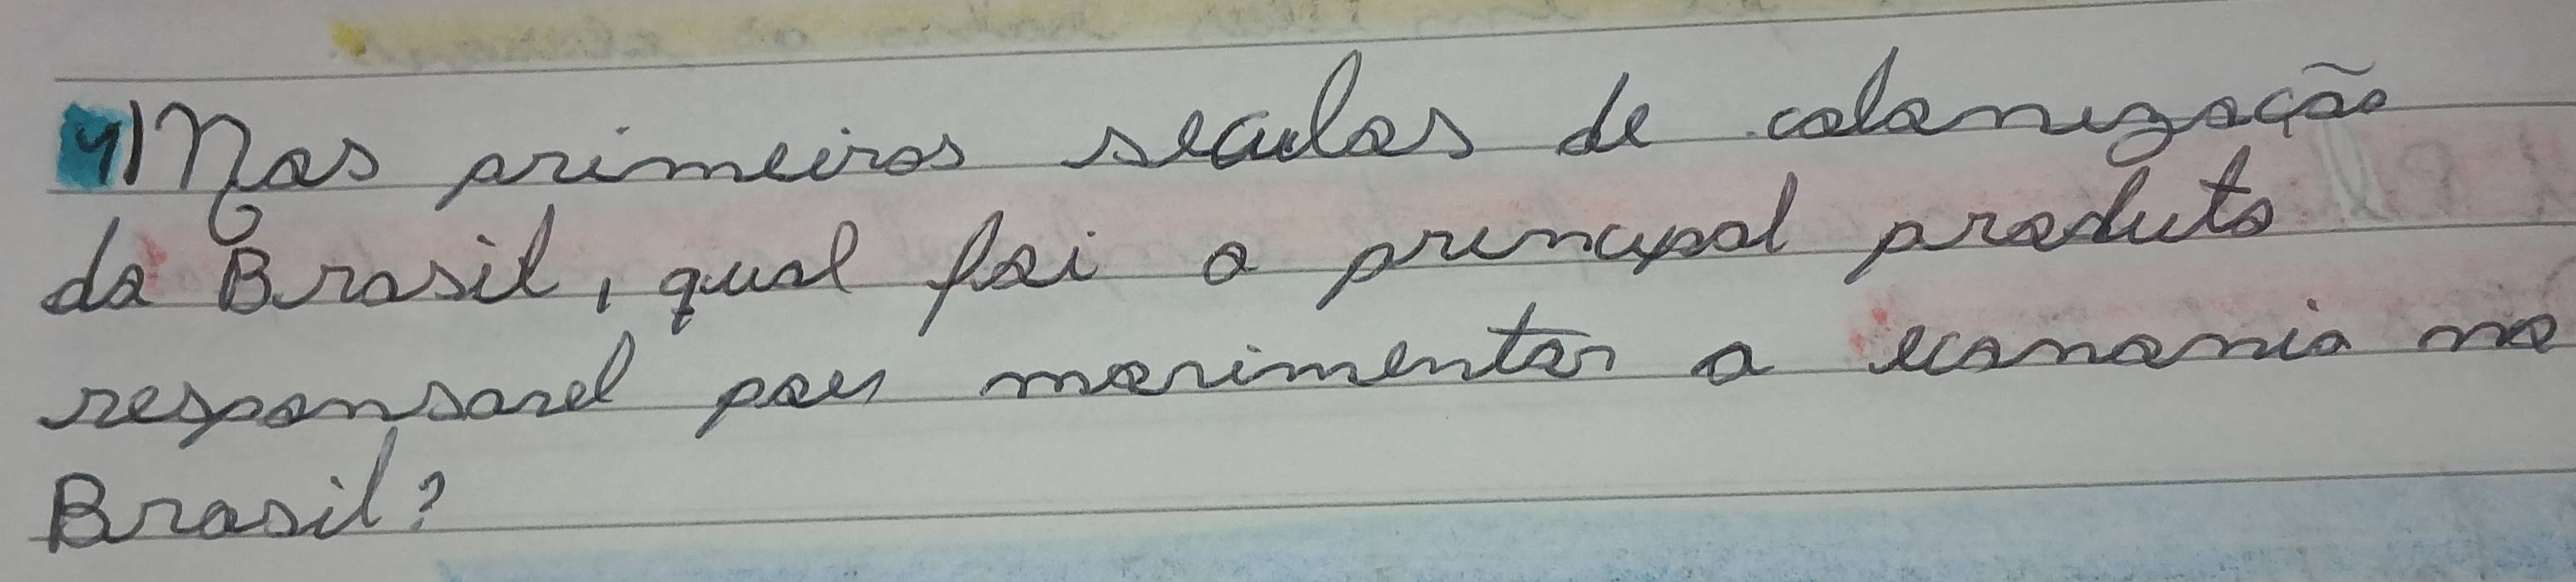 4) Nos primeiros seculos de colonização
do Brasil, qual foi o principal produto
responsavel por movimentar a economia no
Brasil?